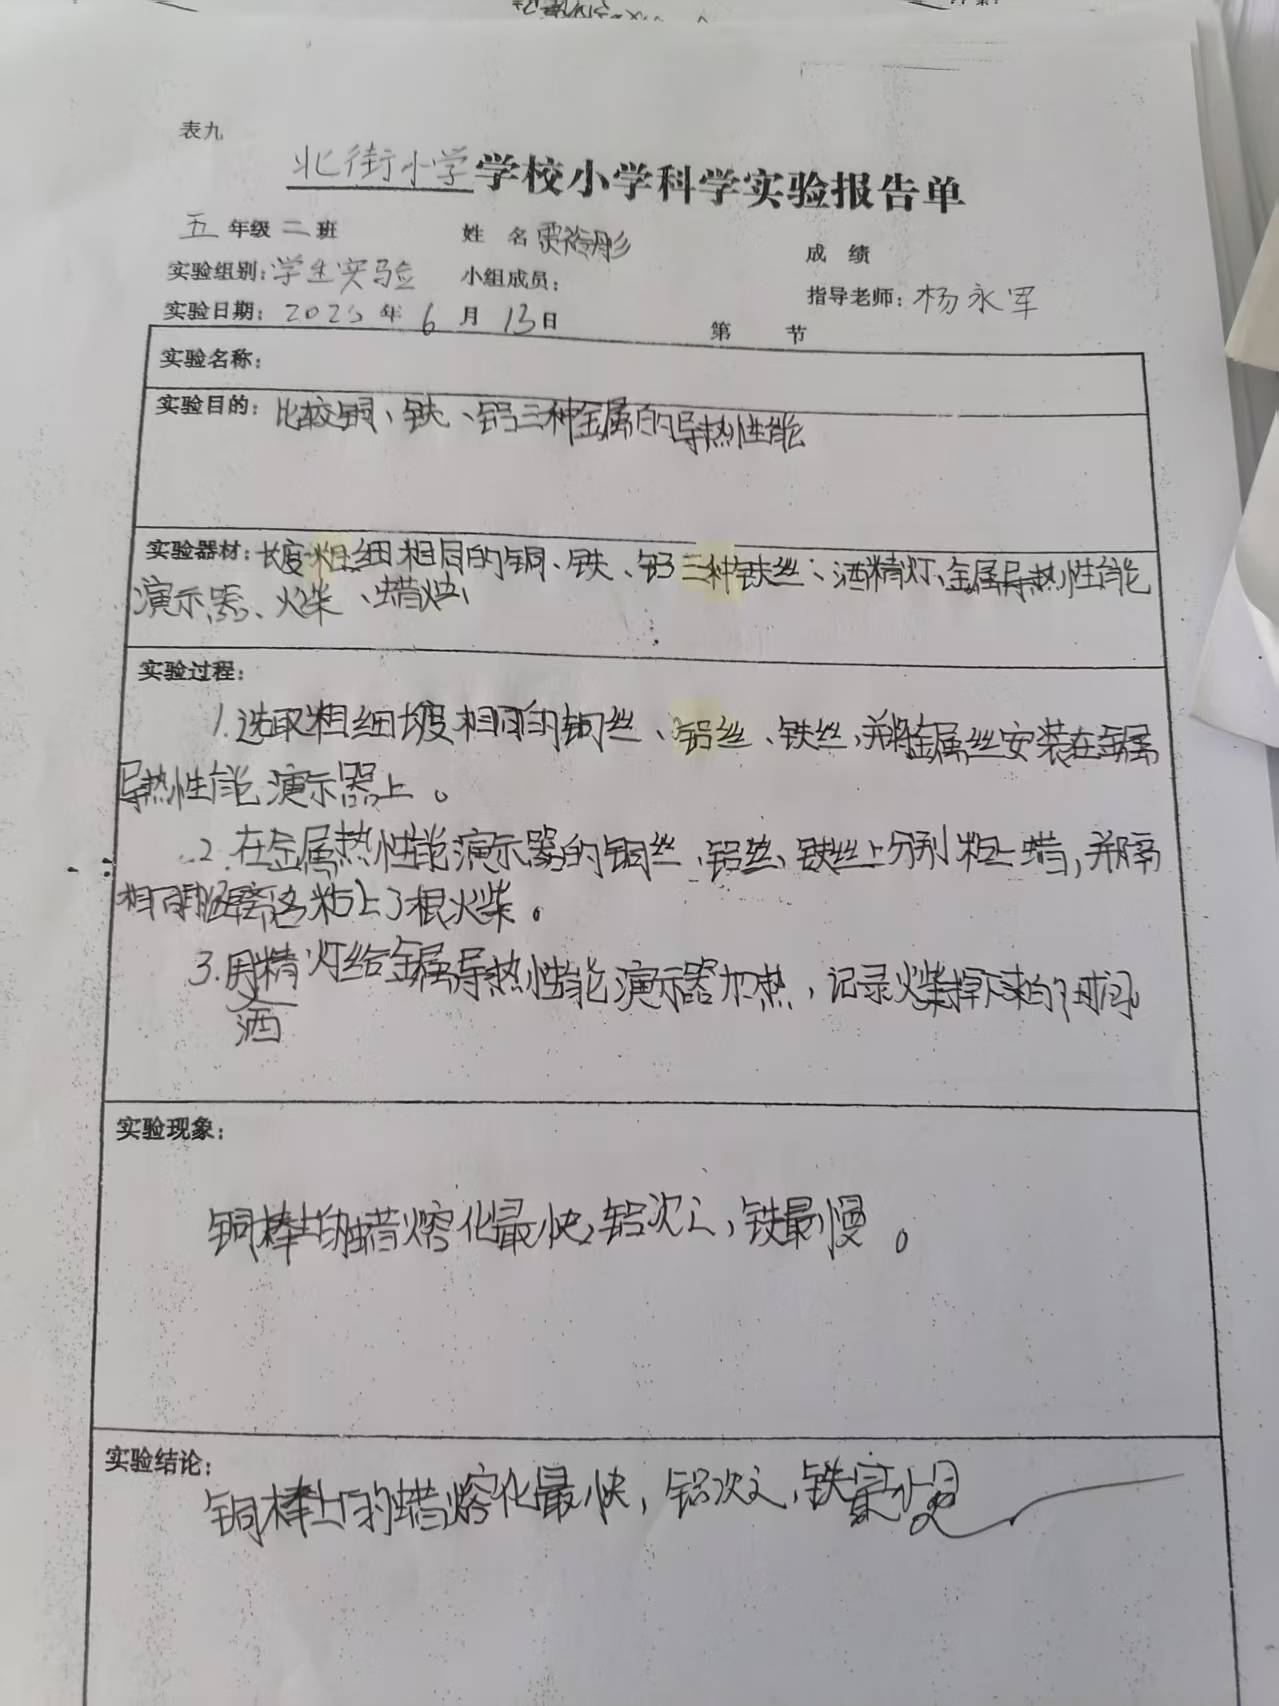 表九
北街小学学校小学科学实验报告单
五年级二班 姓名 贾裕彤 成绩
实验组别:学生实验 小组成员: 指导老师:杨永军
实验日期:2023年6月13日 第 节
实验名称:
实验目的:比较铜、铁、铝三种金属的导热性能
实验器材:长度粗细相同的铜、铁、铝三种铁丝、酒精灯、金属导热性能
演示器、火柴、蜡烛
实验过程:
1.选取粗细长度相同的铜丝、铝丝、铁丝,并将金属丝安装在金属
导热性能演示器上。
2.在金属热性能演示器的铜丝、铝丝、铁丝上分别粘上蜡,并隔
相同距离各粘上3根火柴。
3.用酒精灯给金属导热性能演示器加热,记录火柴掉下来的时间
实验现象:
铜棒上的蜡熔化最快,铝次之,铁最慢。
实验结论:
铜棒上的蜡熔化最快,铝次之,铁最慢